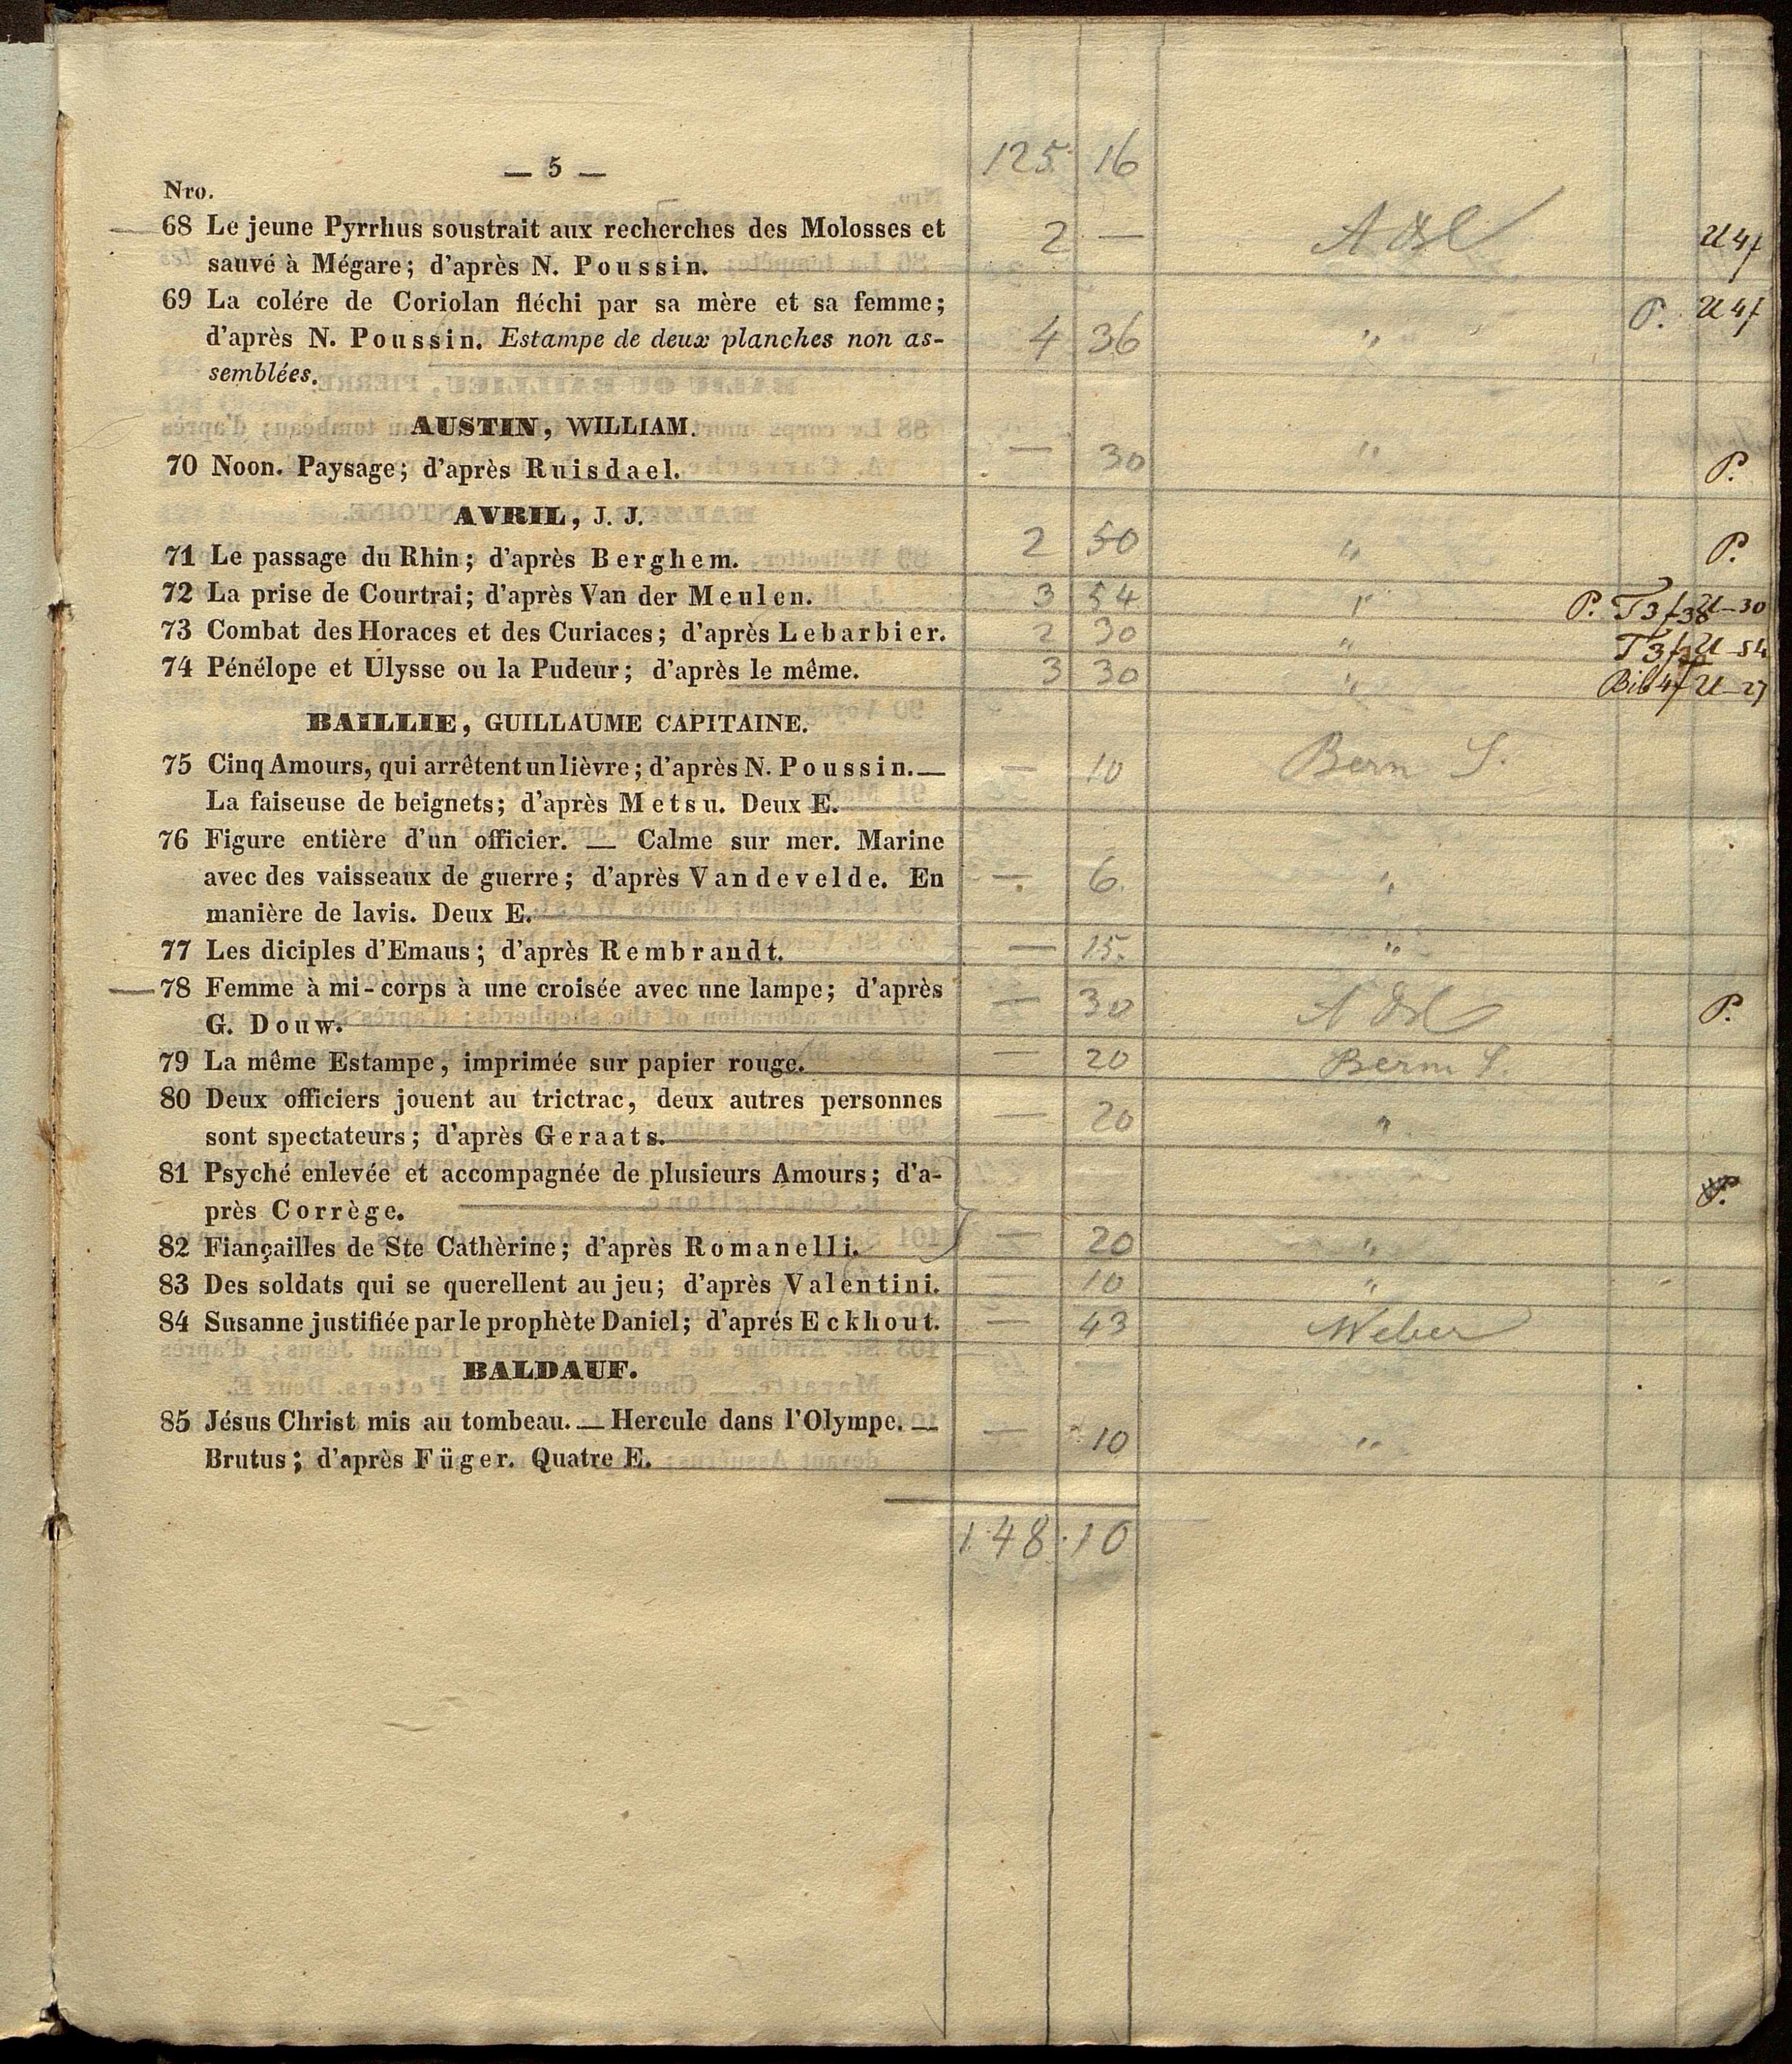 — 5 — 125 16
Nro.
68 Le jeune Pyrrhus soustrait aux recherches des Molosses et 2 —
sauvé à Mégare; d'après N. Poussin. U 4f
69 La colére de Coriolan fléchi par sa mère et sa femme; P. U 4f
d'après N. Poussin. Estampe de deux planches non as- 4 36 "
semblées.
AUSTIN, WILLIAM.
70 Noon. Paysage; d'après Ruisdael. — 30 " P.
AVRIL, J. J.
71 Le passage du Rhin; d'après Berghem. 2 50 " P.
72 La prise de Courtrai; d'après Van der Meulen. 3 54 " P. T 3f38 U—30
73 Combat des Horaces et des Curiaces; d'après Lebarbier. 2 30 " T 3f U—54
74 Pénélope et Ulysse ou la Pudeur; d'après le même. 3 30 " Bib 4f U—27
BAILLIE, GUILLAUME CAPITAINE.
75 Cinq Amours, qui arrêtent un lièvre; d'après N. Poussin. — — 10 Bern S.
La faiseuse de beignets; d'après Metsu. Deux E.
76 Figure entière d'un officier. — Calme sur mer. Marine
avec des vaisseaux de guerre; d'après Vandevelde. En — 6. "
manière de lavis. Deux E.
77 Les diciples d'Emaus; d'après Rembrandt. — 15. "
78 Femme à mi-corps à une croisée avec une lampe; d'après — 30 P.
G. Douw.
79 La même Estampe, imprimée sur papier rouge. — 20 Bern S.
80 Deux officiers jouent au trictrac, deux autres personnes — 20 "
sont spectateurs; d'après Geraats.
81 Psyché enlevée et accompagnée de plusieurs Amours; d'a-
près Corrège. P.
82 Fiançailles de Ste Cathèrine; d'après Romanelli. — 20 "
83 Des soldats qui se querellent au jeu; d'après Valentini. — 10 "
84 Susanne justifiée par le prophète Daniel; d'aprés Eckhout. — 43 Weber
BALDAUF.
85 Jésus Christ mis au tombeau. — Hercule dans l'Olympe. — — 10 "
Brutus; d'après Füger. Quatre E.
148 · 10